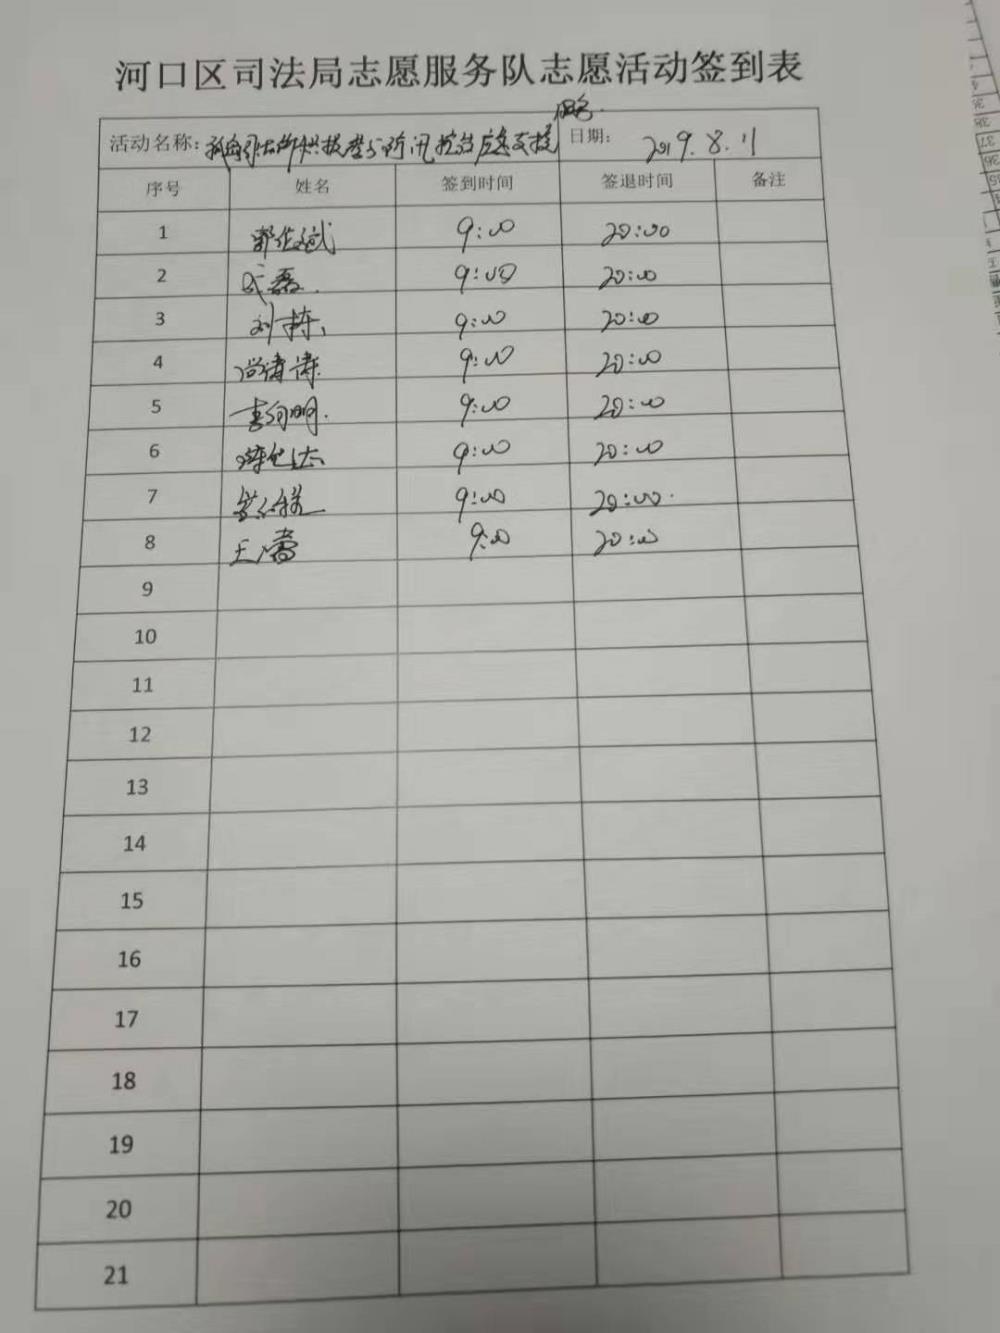 河口区司法局志愿服务队志愿活动签到表
活动名称: 日期: 2019.8.11
序号 姓名 签到时间 签退时间 备注
1 9:00 20:00
2 武磊 9:00 20:00
3 刘栋 9:00 20:00
4 尚涛涛 9:00 20:00
5 李向明 9:00 20:00
6 9:00 20:00
7 9:00 20:00
8 王 9:00 20:00
9
10
11
12
13
14
15
16
17
18
19
20
21